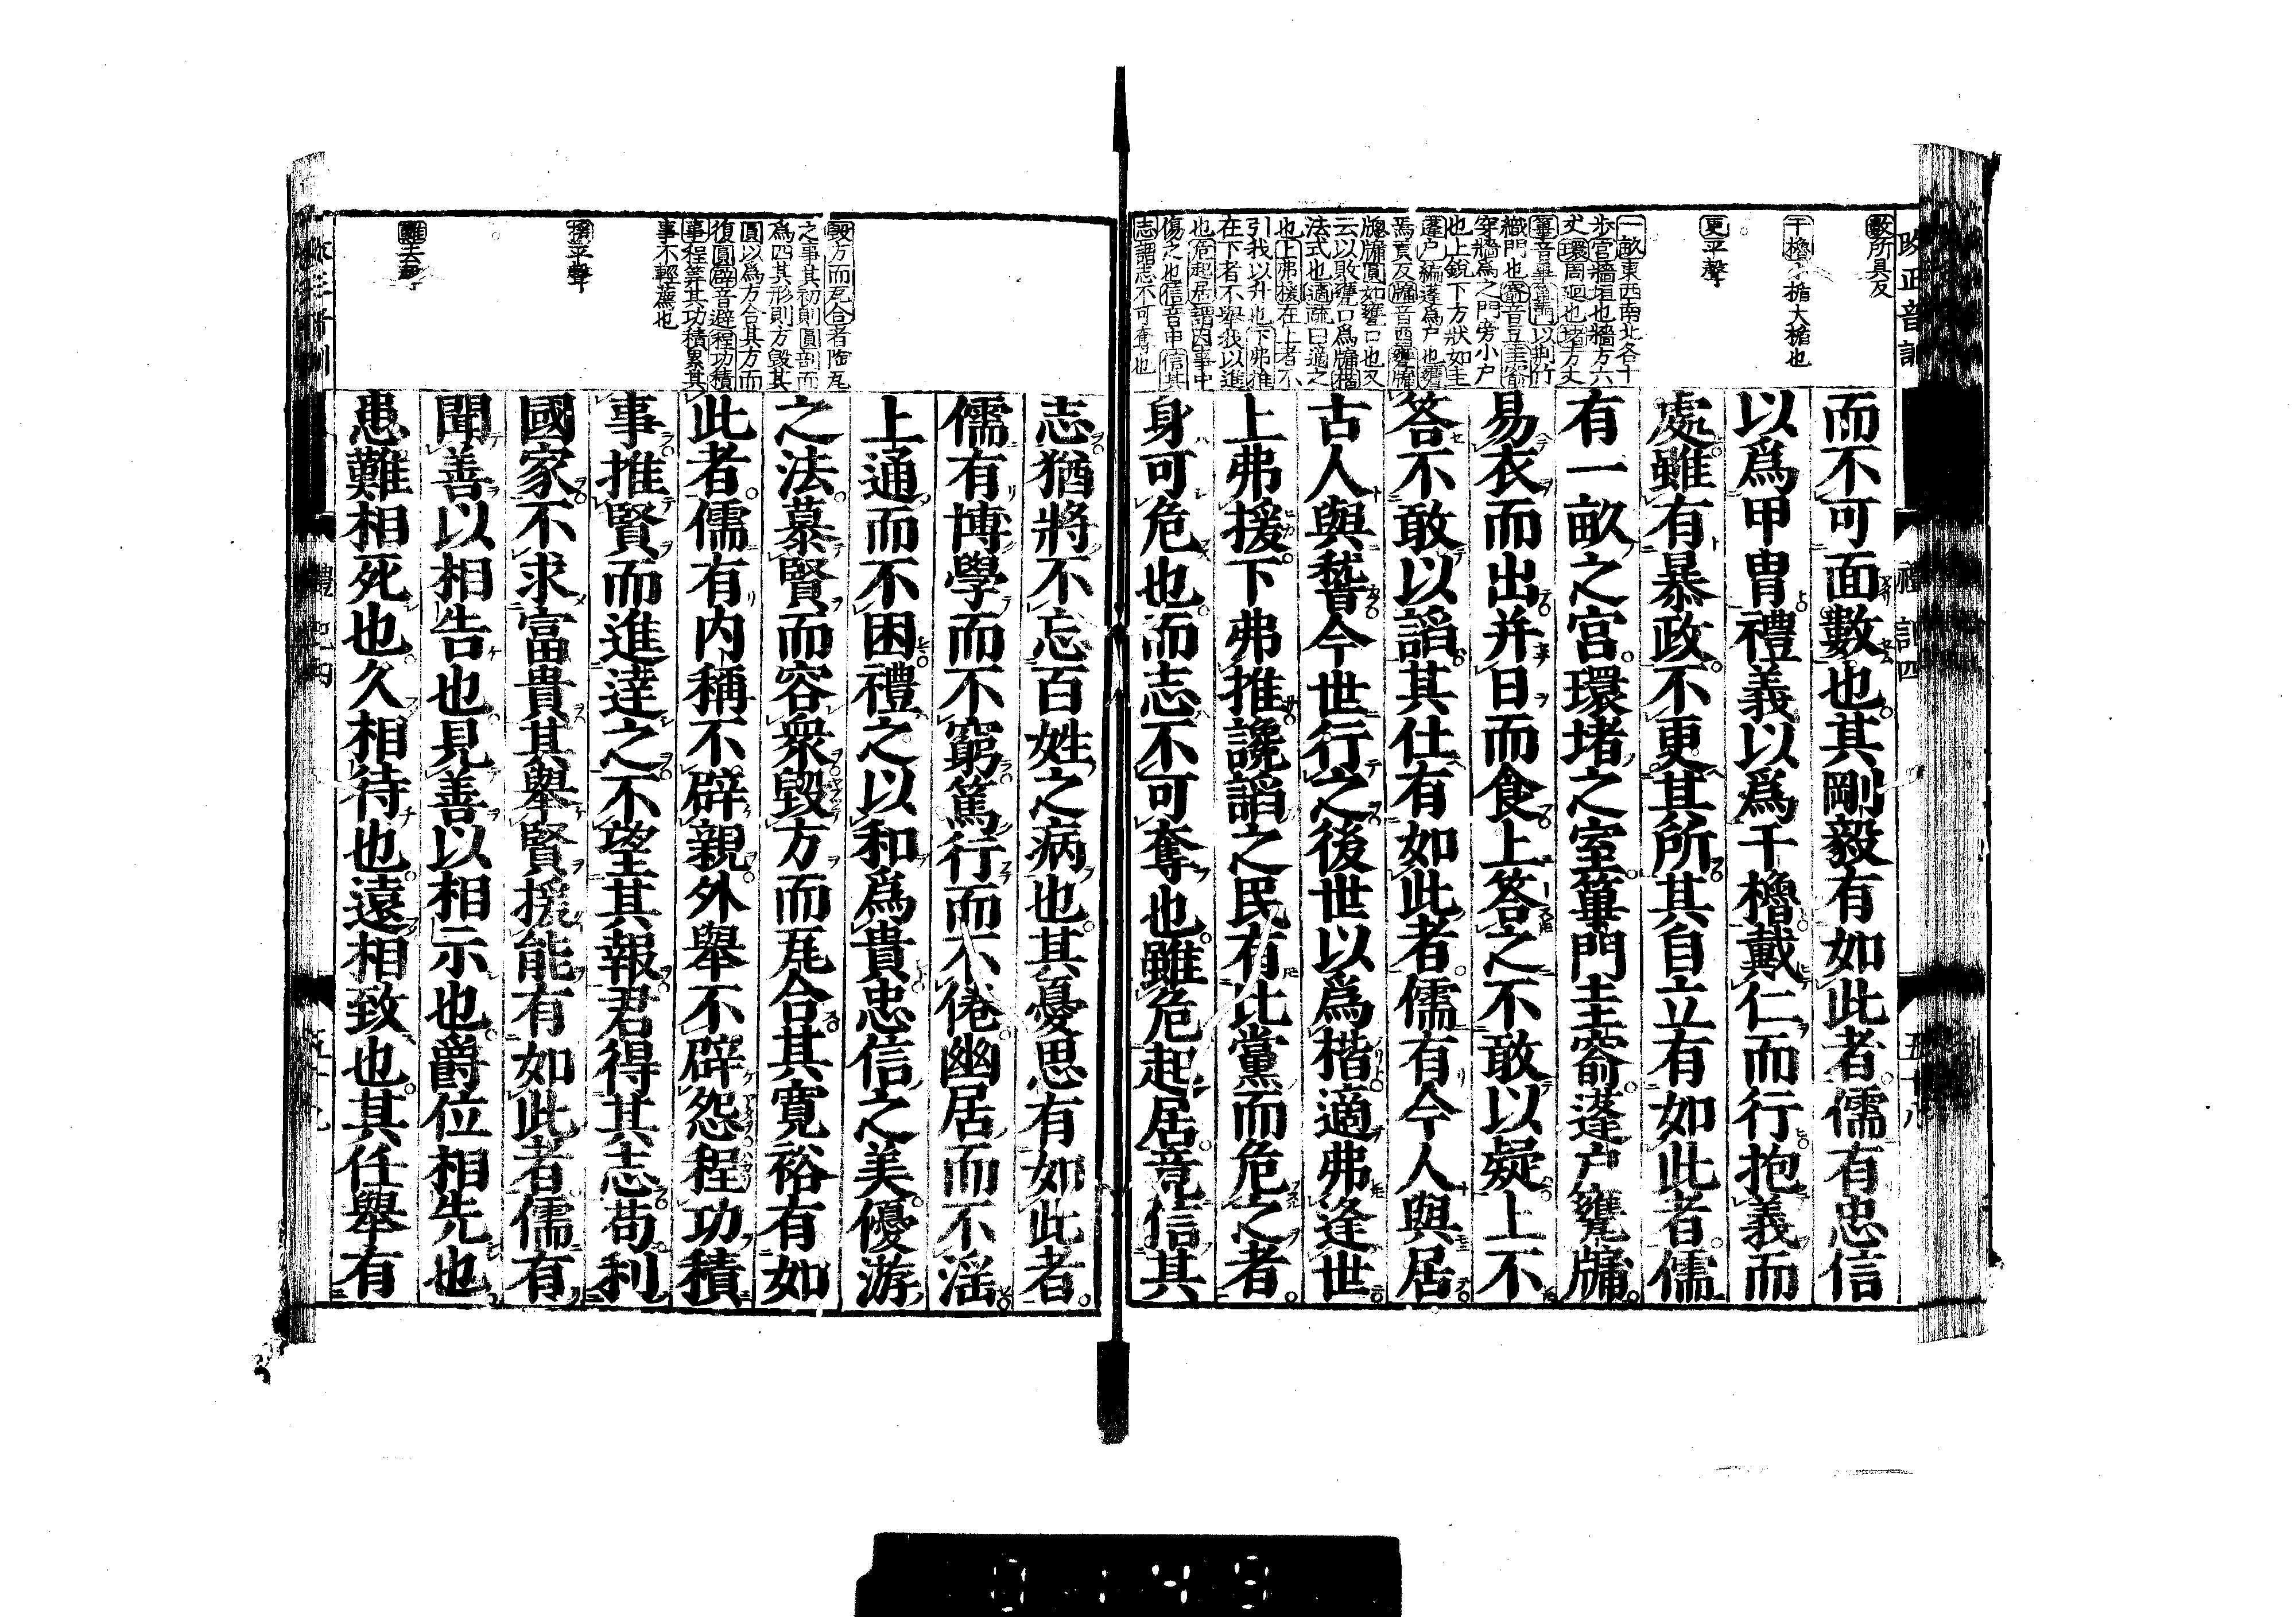 改正音訓
禮記四
五十八
數所具反
干櫓小楯大楯也
更平聲
一畝東西南北各十
歩宮牆垣也牆方六
丈環周廻也堵方丈
篳音畢篳門以荊竹
織門也窬音豆圭窬
穿牆爲之門旁小戸
也上銳下方狀如圭
蓬戸編蓬爲戸也甕
烏貢反牖音酉甕牖
牎牖圓如甕口也又
云以敗甕口爲牖楷
法式也適疏曰適之
也上弗援在上者不
引我以升也下弗推
在下者不舉我以進
也危起居謂因事中
傷之也信音申信其
志謂志不可奪也
而不可面數也其剛毅有如此者儒有忠信
以爲甲冑禮義以爲干櫓戴仁而行抱義而
處雖有暴政不更其所其自立有如此者儒
有一畝之宮環堵之室篳門圭窬蓬戸甕牖
易衣而出并日而食上答之不敢以疑上不
答不敢以諂其仕有如此者儒有今人與居
古人與稽今世行之後世以爲楷適弗逢世
上弗援下弗推讒諂之民有比黨而危之者
身可危也而志不可奪也雖危起居竟信其
毀方而瓦合者陶瓦
之事其初則圓剖而
爲四其形則方毀其
圓以爲方合其方而
復圓辟音避程功積
事程筭其功積累其
事不輕薦也
難去聲
志猶將不忘百姓之病也其憂思有如此者
儒有博學而不窮篤行而不倦幽居而不淫
上通而不困禮之以和爲貴忠信之美優游
之法慕賢而容衆毀方而瓦合其寛裕有如
此者儒有内稱不辟親外舉不辟怨程功積
事推賢而進達之不望其報君得其志苟利
國家不求富貴其舉賢援能有如此者儒有
聞善以相告也見善以相示也爵位相先也
患難相死也久相待也遠相致也其任舉有
0149